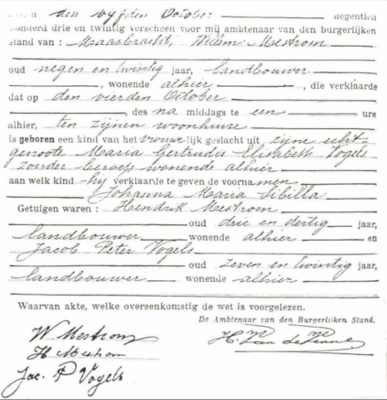 den vyfden October negentien
honderd drie en twintig verscheen voor mij ambtenaar van den burgerlijken
stand van : Maasbracht, Willem Mestrom
oud negen en twintig jaar, landbouwer
, wonende alhier , die verklaarde
dat op den vierden October
, des na middags te een ure
alhier, ten zijnen woonhuize
is geboren een kind van het vrouwelijk geslacht uit zijne echt-
genoote Maria Gertrudis Elisabeth Vogels
zonder beroep wonende alhier
aan welk kind hij verklaarde te geven de voornamen
Johanna Maria Sibilla
Getuigen waren : Hendrik Mestrom
oud drie en dertig jaar
landbouwer wonende alhier en
Jacob Peter Vogels
oud zeven en twintig jaar
landbouwer wonende alhier.
Waarvan akte, welke overeenkomstig de wet is voorgelezen.
De Ambtenaar van den Burgerlijken Stand.
W Mestrom
H. Mestrom
Jac. P Vogels